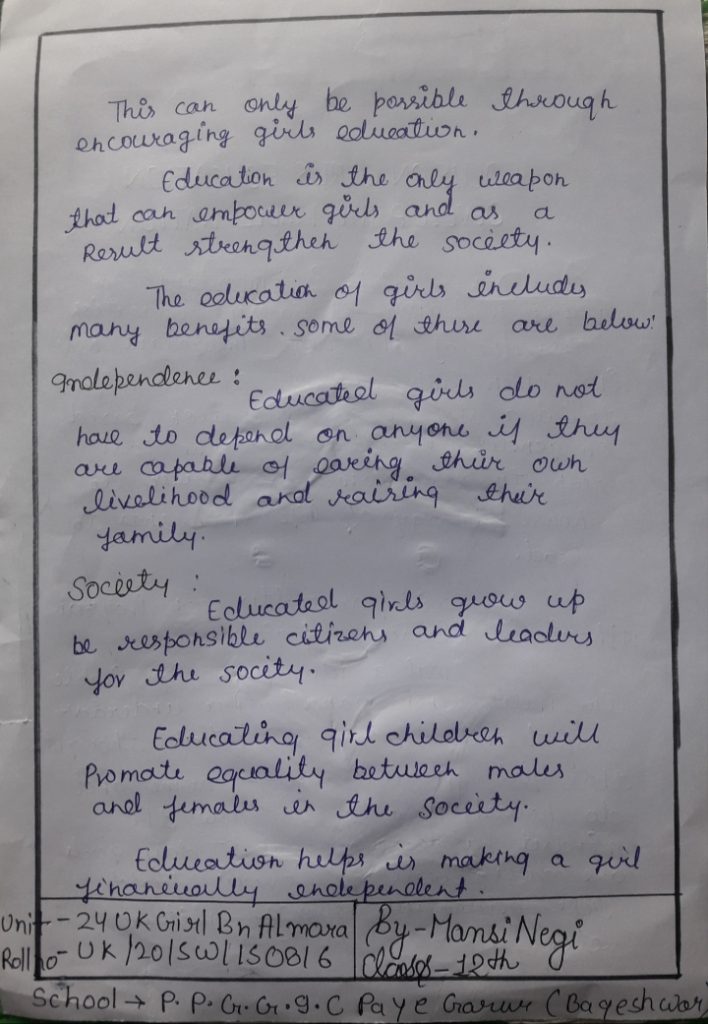 This can only be possible through
encouraging girls education.
Education is the only weapon
that can empower girls and as a
Result strengthen the society.
The education of girls includes
many benefits. some of these are below:
Independence:
Educated girls do not
have to depend on anyone if they
are capable of earing their own
livelihood and raising their
family.
Society:
Educated girls grow up
be responsible citizens and leaders
for the socity.
Educating girl children will
Promate equality between males
and females in the society.
Education helps is making a girl
financially endependent.
Unit - 24 UK Girl Bn Almora
Roll no - UK/20/SW/150816
By - Mansi Negi
Class - 12th
School → P. P. G. G. I. C Paye Garur (Bageshwar)